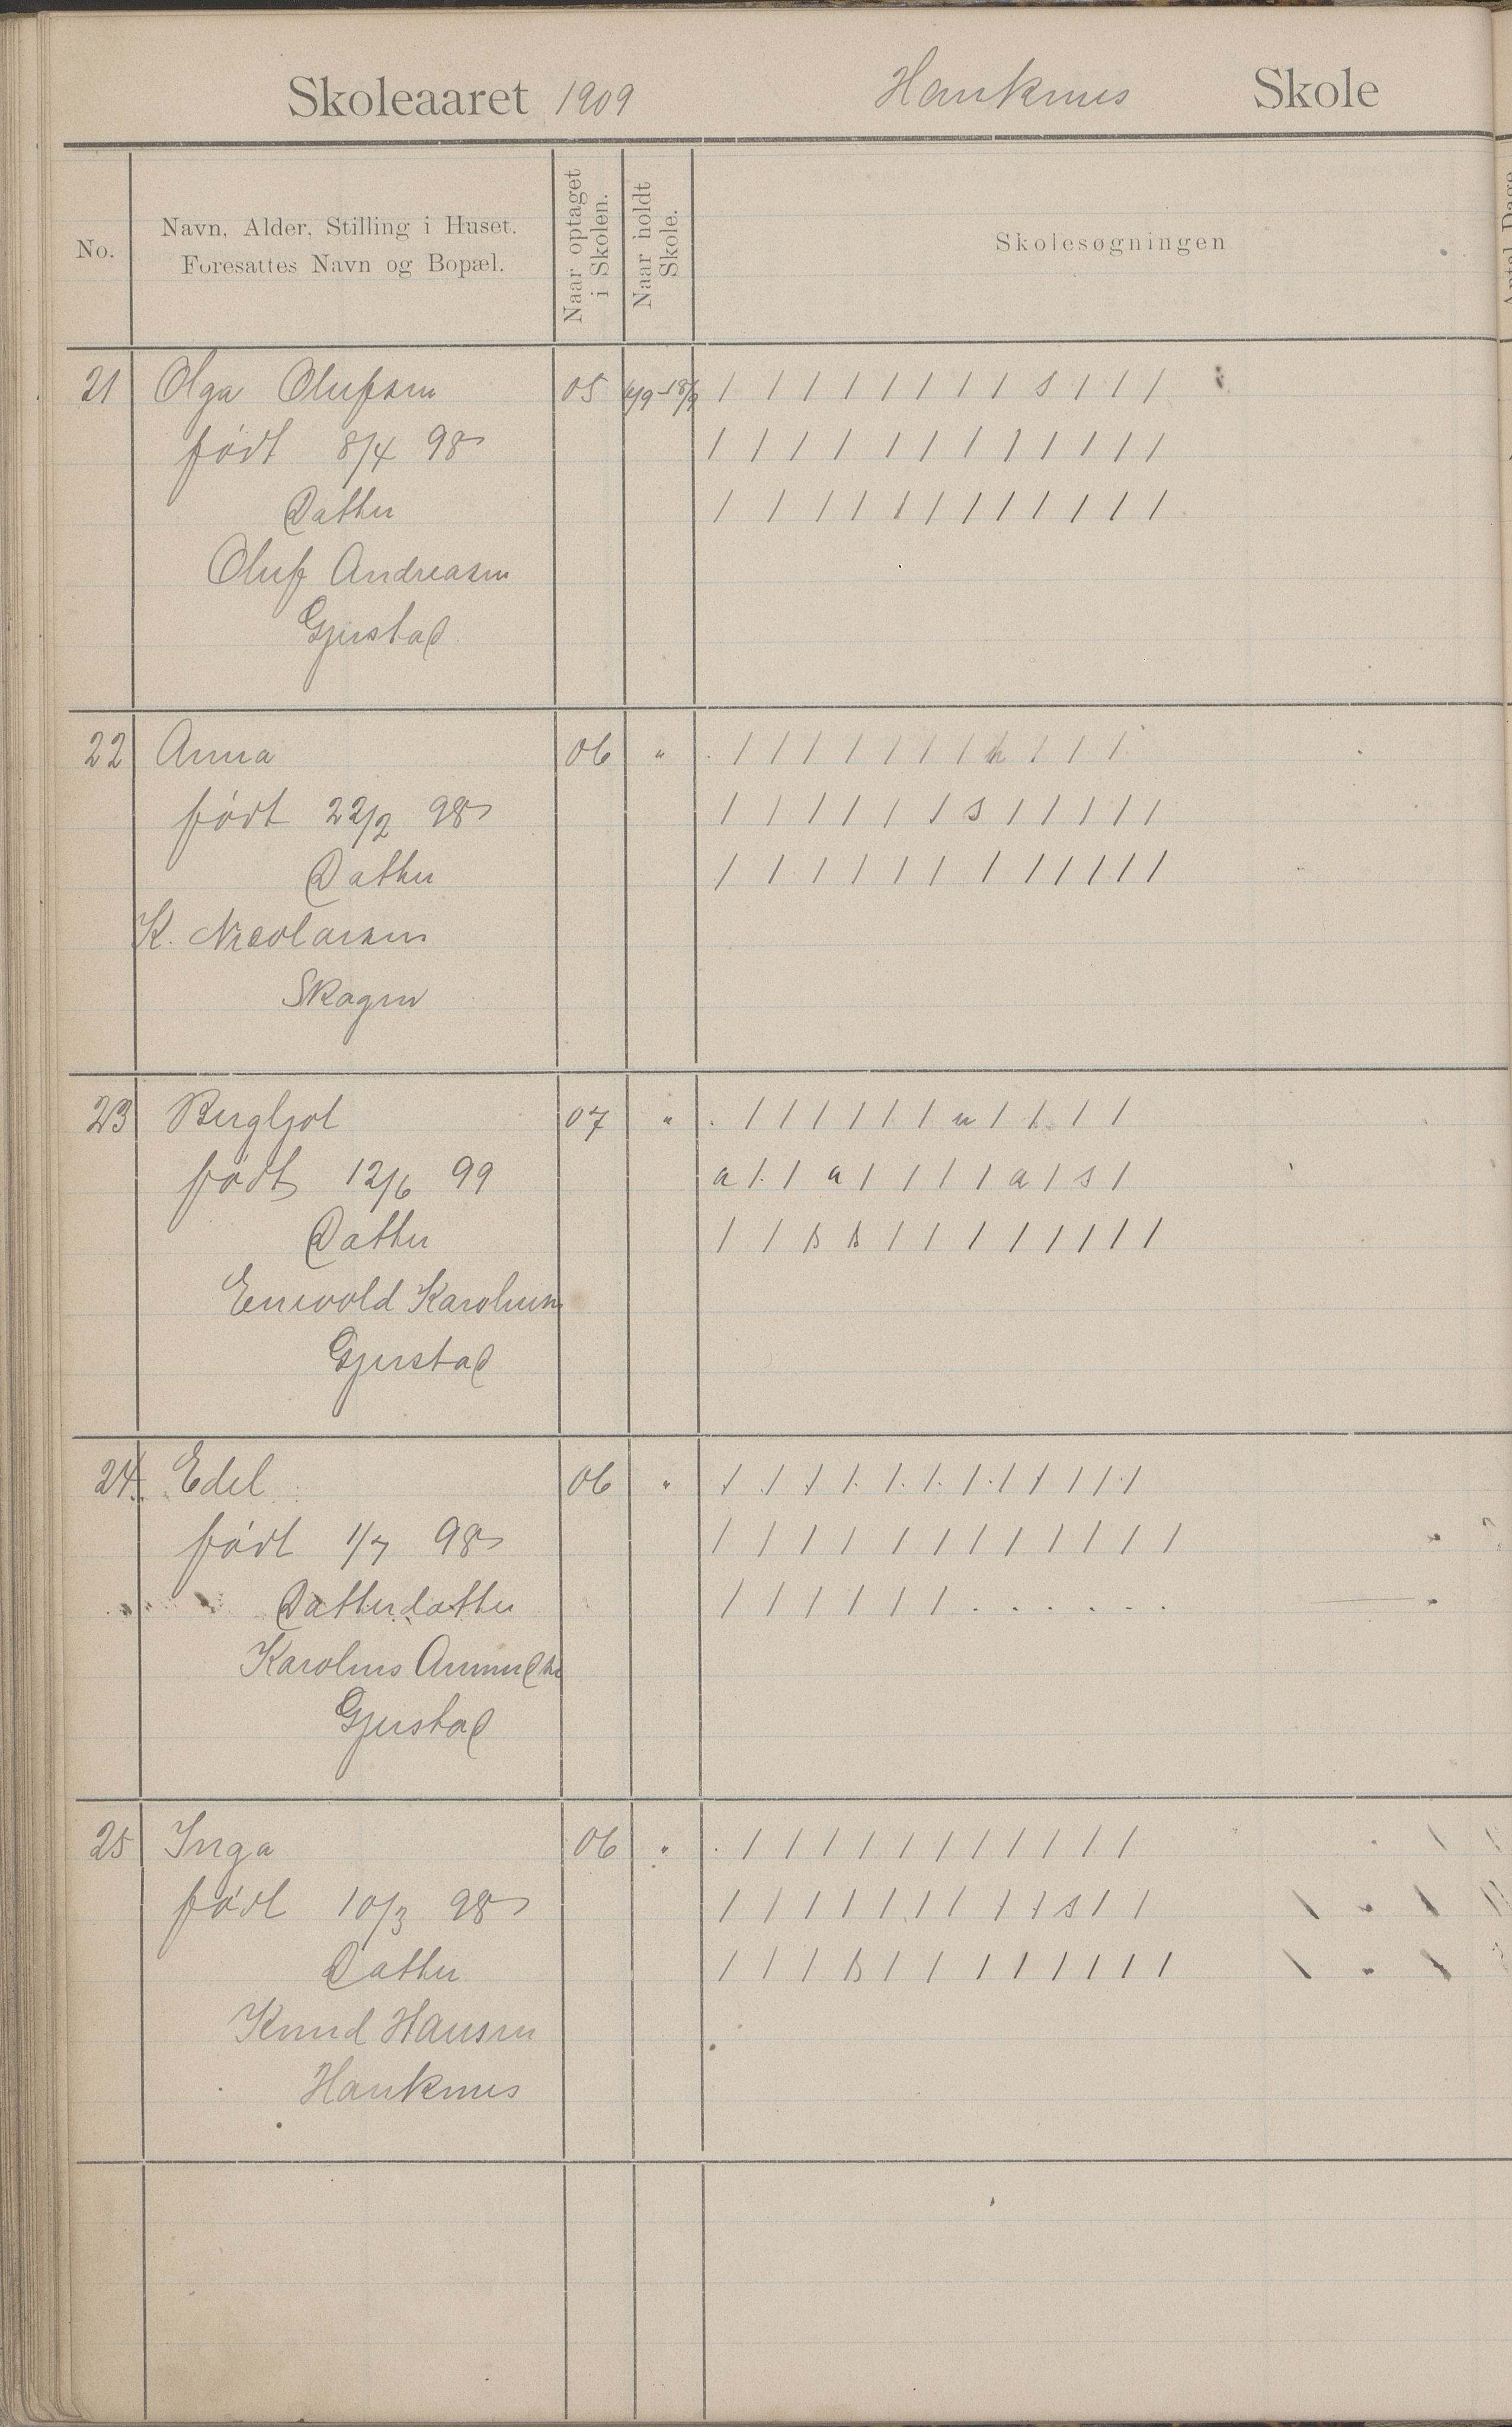 Skoleaaret 1909 Hauknes Skole
No. Navn, Alder, Stilling i Huset. Foresattes Navn og Bopæl. Naar optaget i Skolen. Naar holdt Skole. Skolesøgningen
21 Olga Olufsen 05 6/9-18/9 / / / / / / / / s / / /
født 8/4 98 / / / / / / / / / / / /
Datter / / / / / / / / / / / /
Oluf Andreasen
Gjerstad
22 Anna 06 " . / / / / / / / h / / /
født 22/2 98 / / / / / / s / / / / /
Datter / / / / / / / / / / / /
K. Nicolaisen
Skogen
23 Bergljot 07 " . / / / / / / u / / / /
født 12/6 99 a / / a / / / / a / s /
Datter / / s s / / / / / / / /
Enevold Karolius
Gjerstad
24. Edel 06 " / / / / / / / / / / / /
født 1/7 98 / / / / / / / / / / / /
Datterdatter / / / / / / . . . . . .
Karolius
Gjerstad
25 Inga 06 " . / / / / / / / / / / /
født 10/3 98 / / / / / / / / / s / /
Datter / / / s / / / / / / / /
Knud Hansen
Hauknes